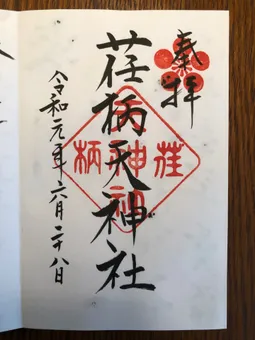 奉拝
荏柄天神社
令和元年六月二十八日
荏
神
柄